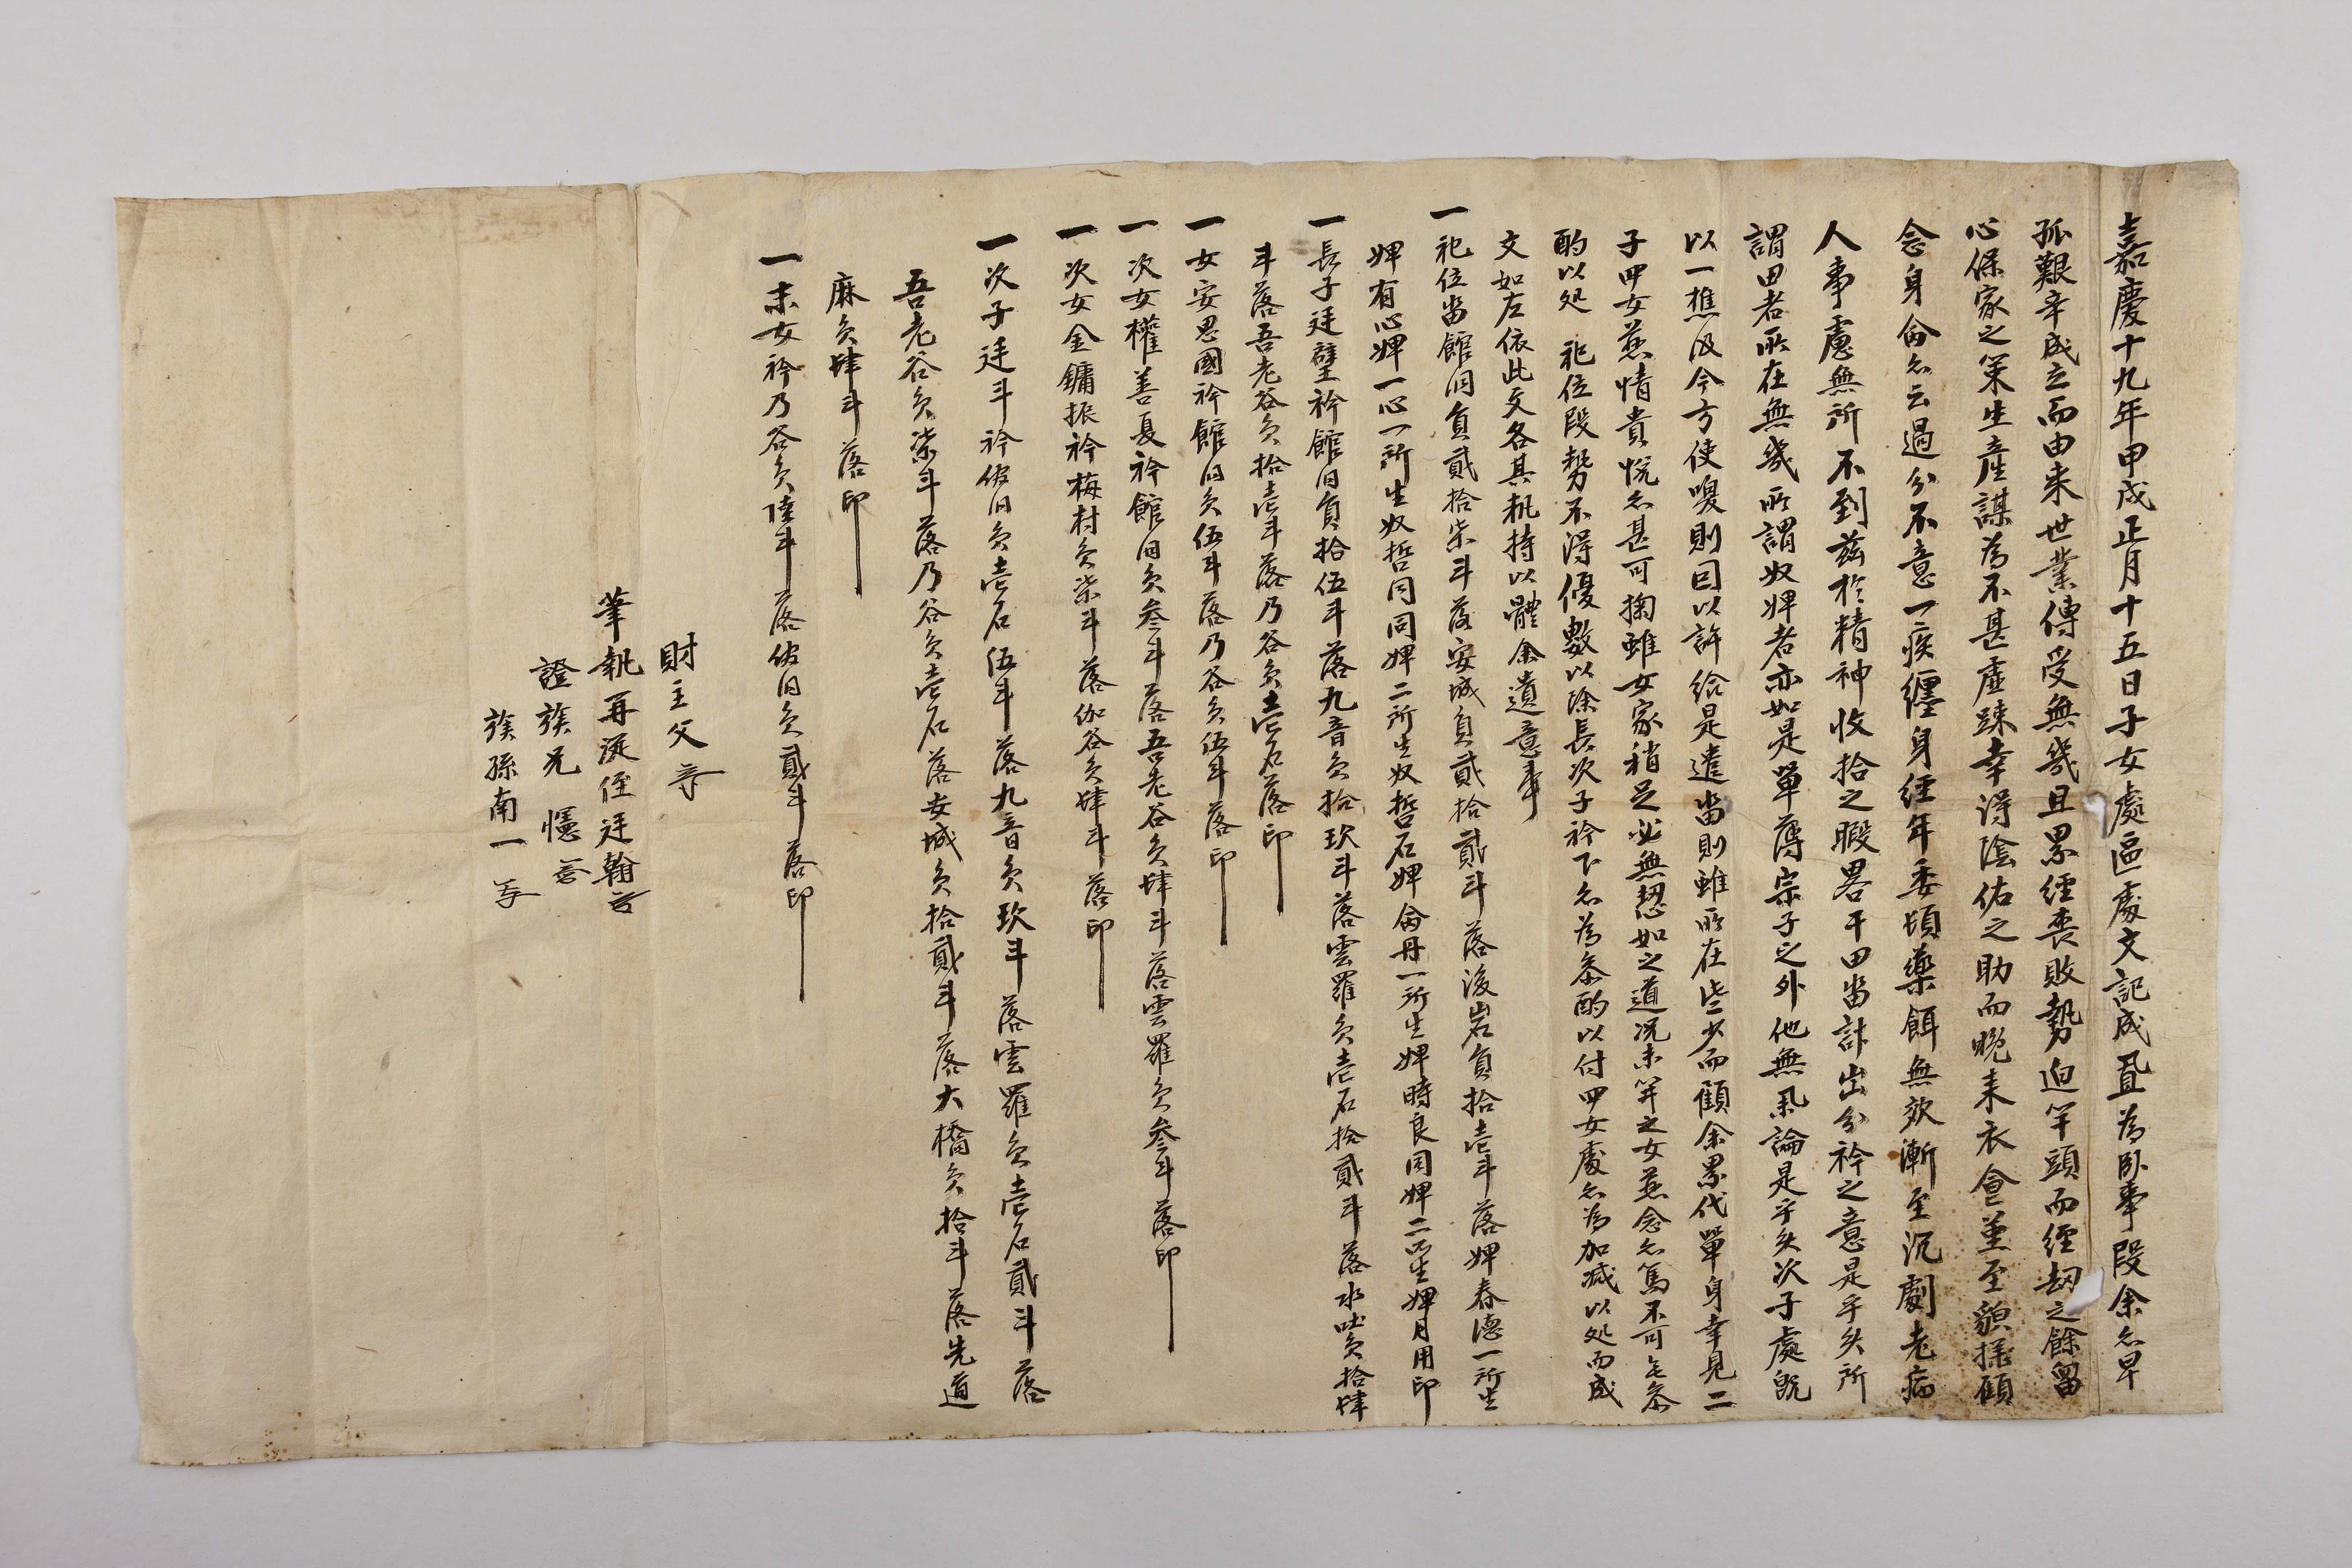 嘉慶十九年甲戌正月十五日子女處區處文記成置為臥乎事段余亦早
孤艱辛成立而由来世業傳受無幾且累經喪敗勢迫竿頭而經劫之餘留
心保家之策生産謀為不甚虛踈幸得陰佑之助而晚来衣食董至貌樣顧
念身命亦云過分不意一疾纏身經年委頓藥餌無效漸至沉劇老病
人事慮無所不到玆於精神收拾之暇畧干田畓計出分衿之意是乎矣所
謂田者所在無幾所謂奴婢者亦如是單薄宗子之外他無氣論是乎矣次子處既
以一樵汲今方使喚則因以許給是遣畓則雖所在些少而顧余累代單身幸見二
子四女慈情貴悅亦甚可掬雖女家稍足必無恝如之道况末笄之女慈念亦篤不可無叅
酌以処 祀位段勢不得優數以除長次子衿下亦為叅酌以付四女處亦為加减以処而成
文如左依此文各其執持以體余遺意事
一祀位畓館洞負貳拾柒斗落安城負貳拾貳斗落後岩負拾壹斗落婢春德一所生
婢有心婢一心一所生奴哲同同婢二所生奴哲石婢命丹一所生婢時良同婢二所生婢月用印
一長子廷璧衿館旧負拾伍斗落九音負拾玖斗落雲羅負壹石拾貳斗落水吐負拾肆
斗落吾老谷負拾壹斗落乃谷負壹石落印
一女安思國衿館旧負伍斗落乃谷負伍斗落印
一次女權善夏衿館旧負叁斗落吾老谷負肆斗落雲羅負叁斗落印
一次女金鏞振衿梅村負柒斗落伽谷負肆斗落印
一次子廷斗衿館旧負壹石伍斗落九音負玖斗落雲羅負壹石貳斗落
吾老谷負柒斗落乃谷負壹石落安城負拾貳斗落大橋負拾斗落先道
麻負肆斗落印
一末女衿乃谷負陸斗落館旧負貳斗落印
財主父
筆執再從侄廷翰
證族兄 憶
族孫南一